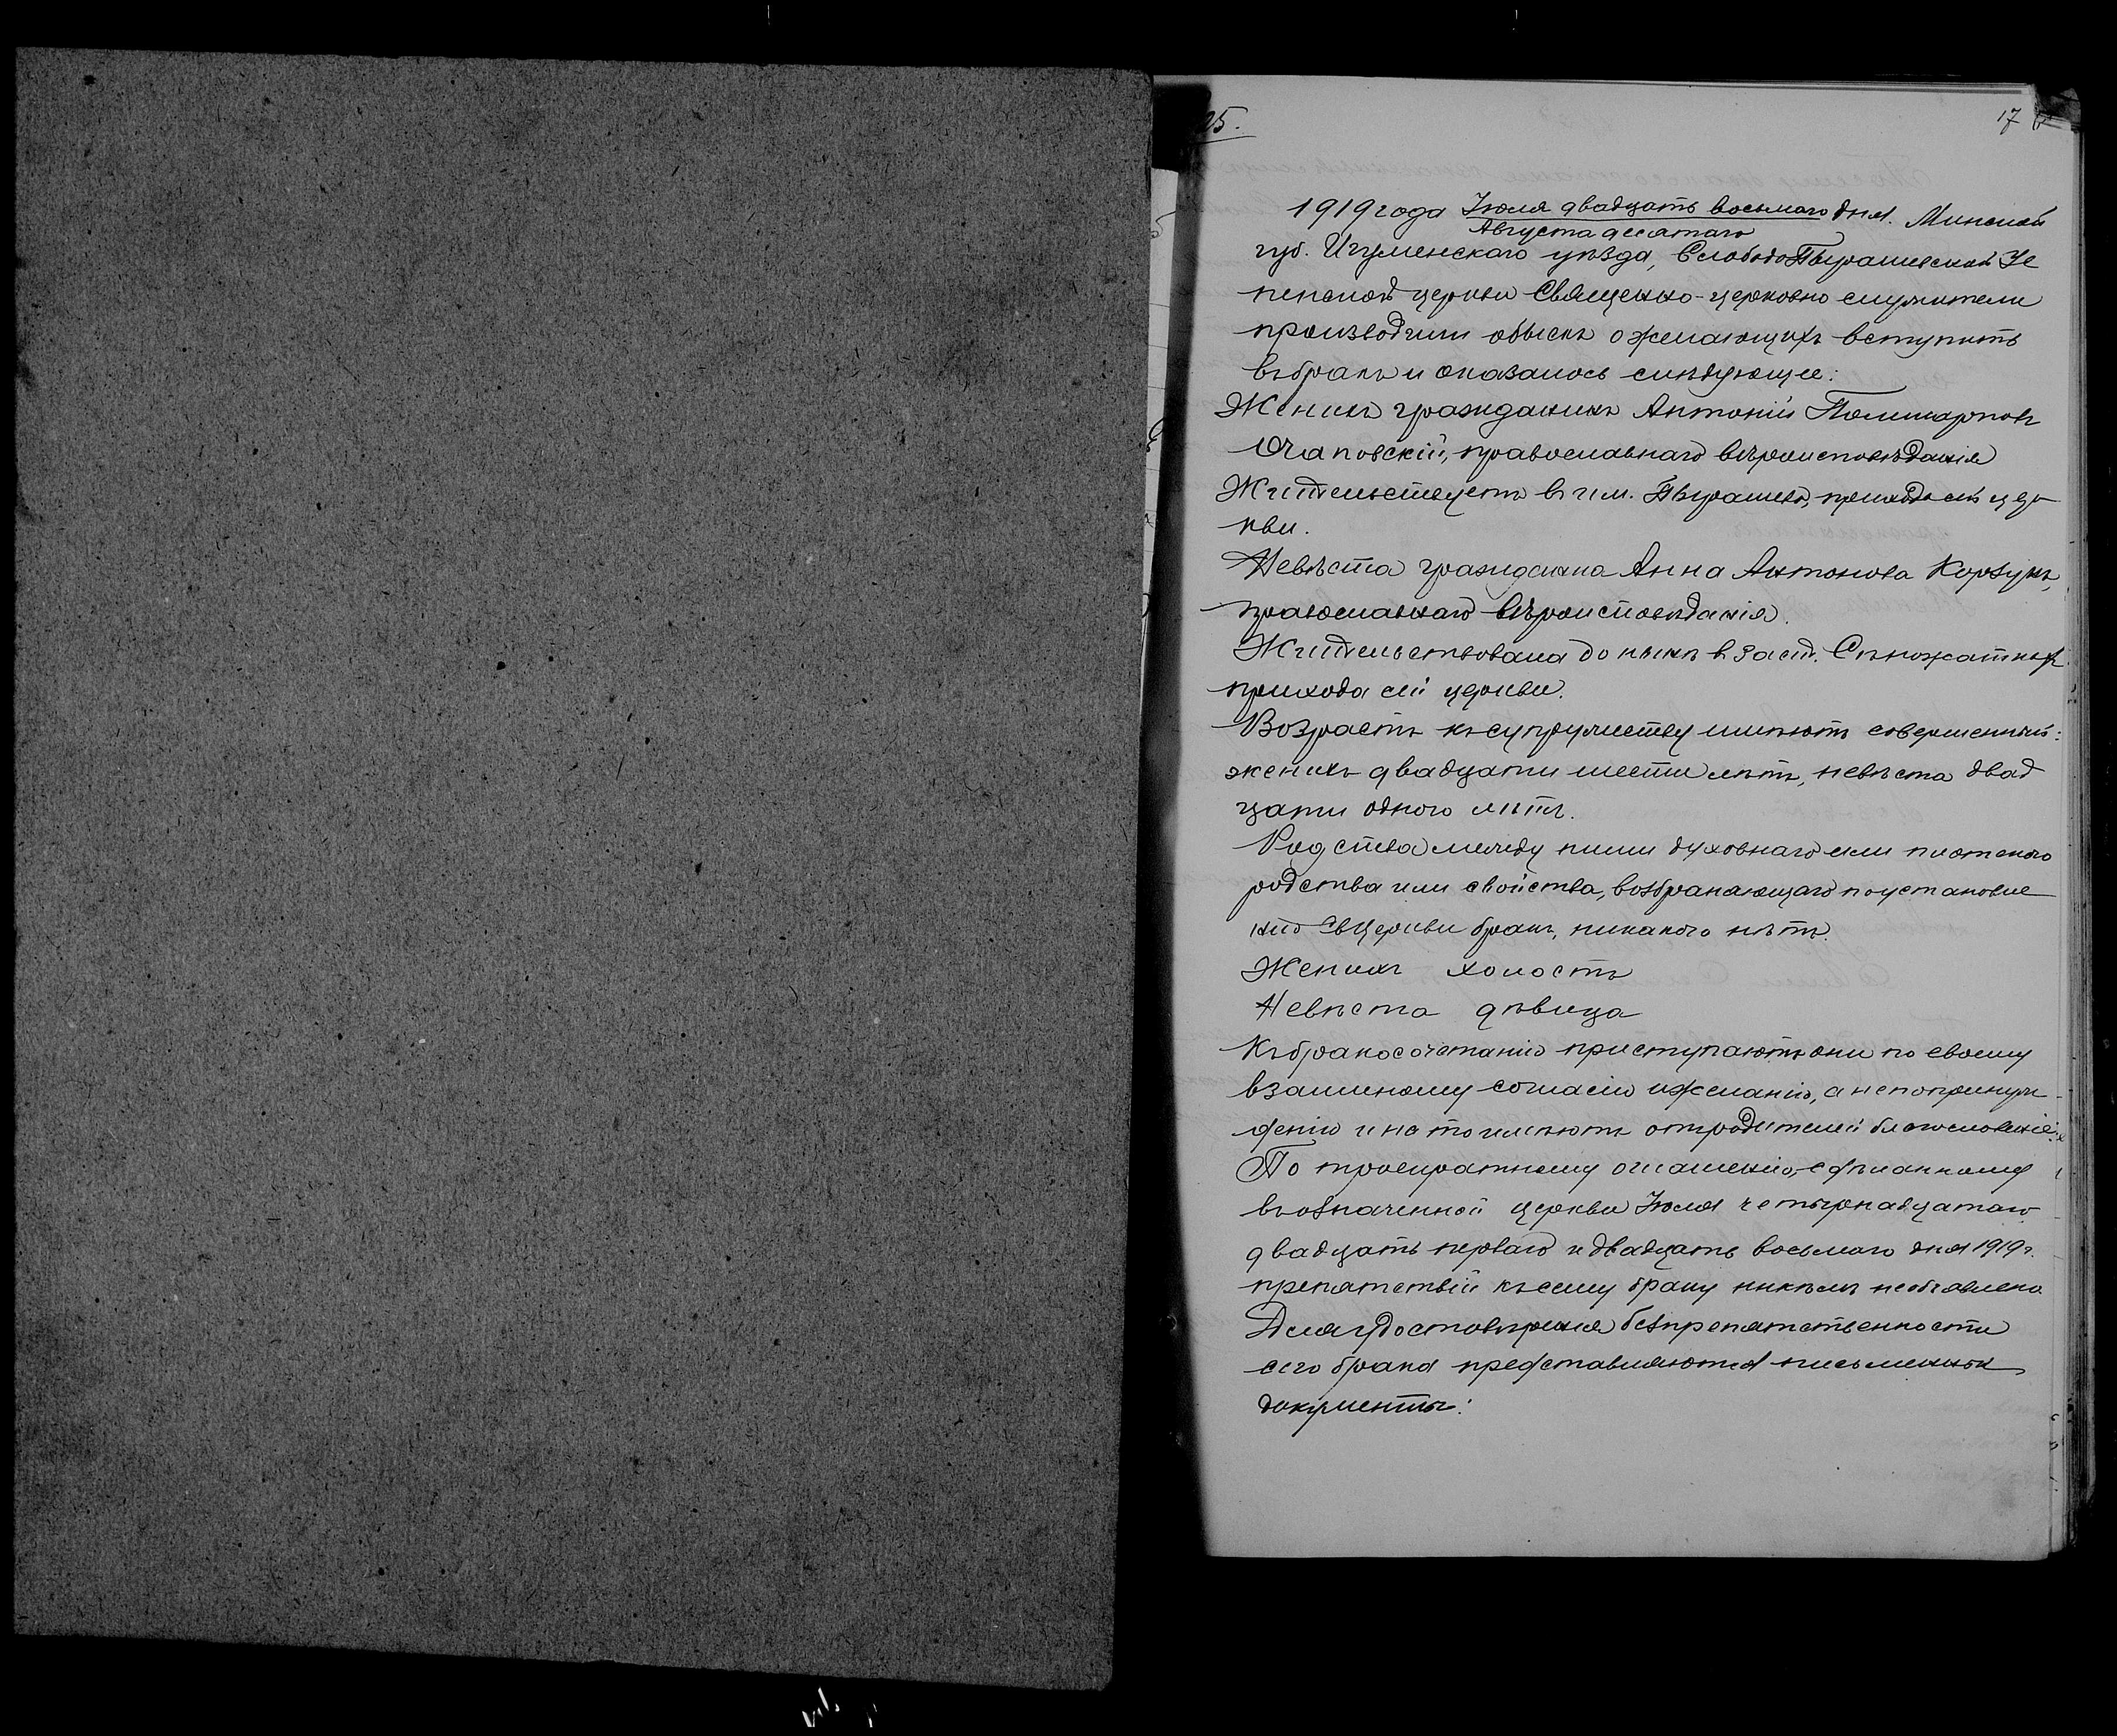 25.
17
1919 года Іюля двадцать восьмого дня. Минской
Августа десятаго
губ. Игуменскаго уѣзда, Слободо Пырашевской
церкви Священно-церковно служители
производили обыскъ о желающихъ вступить
въ бракъ и оказалось слѣдующее:
Женихъ гражданинъ Антоній Поликарповъ
Очаповскій, православнаго вѣроисповѣданія
Жительствуетъ въ им. Пырашево, прихода сей цер-
кви.
Невѣста гражданка Анна Антонова Корзунъ,
православнаго вѣроисповѣданія.
Жительствовала до нынѣ в заст. Сѣножатки
прихода сей церкви.
Возрастъ къ супружеству имѣютъ совершенный:
женихъ двадцати шести лѣтъ, невѣста двад
цати одного лѣтъ.
Родства между ними духовнаго или плотского
родства или свойства, возбраняющаго по установле
нію Св Церкви бракъ, никакого нѣтъ.
Женихъ холостъ
Невѣста дѣвица
Къ бракосочетанію приступаютъ они по своему
взаимному согласію и желанію, а не по принуж-
денію и на то имѣютъ отъ родителей благословеніе.
По троекратному оглашенію, сдѣланному
въ означенной церкви Іюля четырнадцатаго
двадцать перваго и двадцать восьмого дня 1919 г.
препятствій къ сему браку никѣмъ необъявлено
Для удостовѣренія безпрепятственности
сего брака представляются письменные
документы: